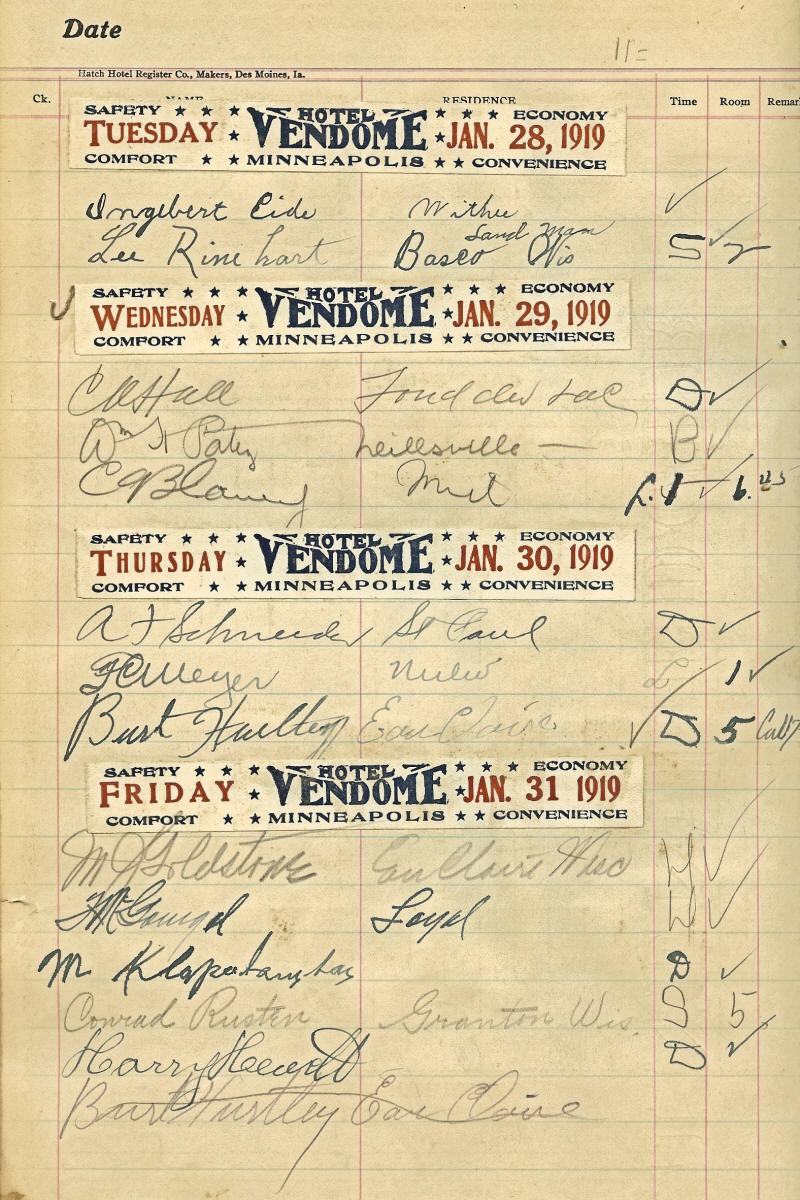 Date
11=
Hatch Hotel Register Co., Makers, Des Moines, Ia.
Ck. NAME RESIDENCE Time Room Remar
SAFETY ★ ★ ★ HOTEL ★ ★ ★ ECONOMY
TUESDAY ★ VENDOME ★ JAN. 28, 1919
COMFORT ★ ★ MINNEAPOLIS ★ ★ CONVENIENCE
Ingebert Eide Withee ✓
Sand Mam
Lee Rinehart Basco Wis S ✓ 2
SAFETY ★ ★ ★ HOTEL ★ ★ ★ ECONOMY
✓ WEDNESDAY ★ VENDOME ★ JAN. 29, 1919
COMFORT ★ ★ MINNEAPOLIS ★ ★ CONVENIENCE
C A Hall Fond du Lac D ✓
Wm H Neillsville — B ✓
C Mil L. 1 ✓ 6.
SAFETY ★ ★ ★ HOTEL ★ ★ ★ ECONOMY
THURSDAY ★ VENDOME ★ JAN. 30, 1919
COMFORT ★ ★ MINNEAPOLIS ★ ★ CONVENIENCE
A F Schneider St Paul D ✓
F C Meyer Milw L 1 ✓
Burt Eau Claire ✓ D 5
SAFETY ★ ★ ★ HOTEL ★ ★ ★ ECONOMY
FRIDAY ★ VENDOME ★ JAN. 31 1919
COMFORT ★ ★ MINNEAPOLIS ★ ★ CONVENIENCE
M J Goldstone Eau Claire Wisc ✓
Loyal ✓
M D ✓
Conrad Rusten Granton Wis. S 5
Harry Hewett D ✓
Burt Hurtley Eau Claire